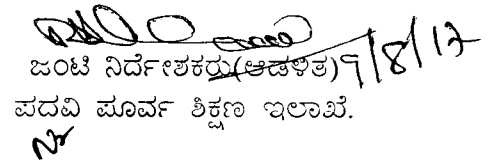 ಜಂಟಿ ನಿರ್ದೇಶಕರು(ಆಡಳಿತ) 9/8/17
ಪದವಿ ಪೂರ್ವ ಶಿಕ್ಷಣ ಇಲಾಖೆ.